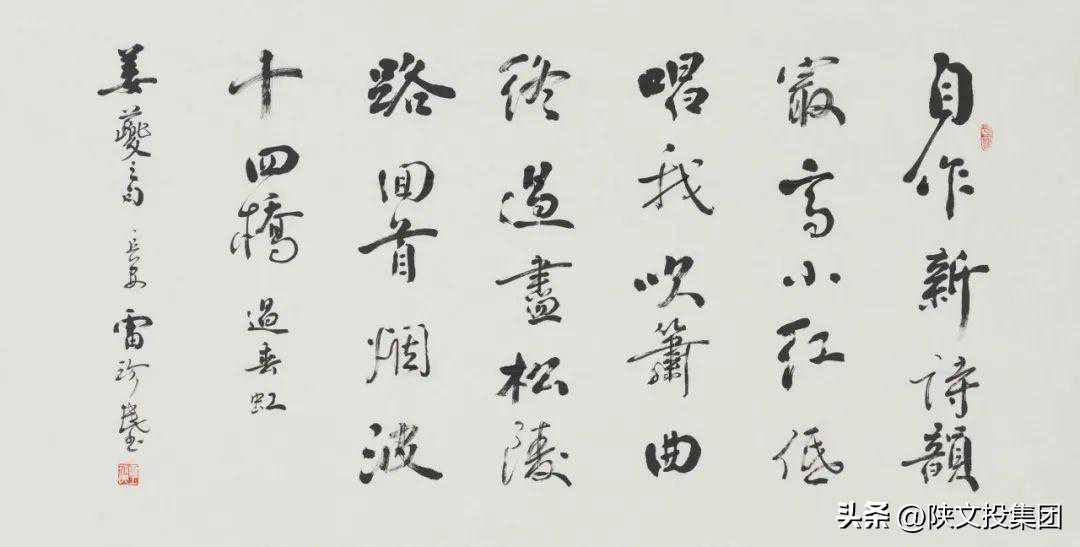 自作新詩韻
最高小紅低
唱我吹簫曲
終過盡松陵
路回首烟波
十四橋 過垂虹
姜夔 長安 雷珍
头条 @陕文投集团